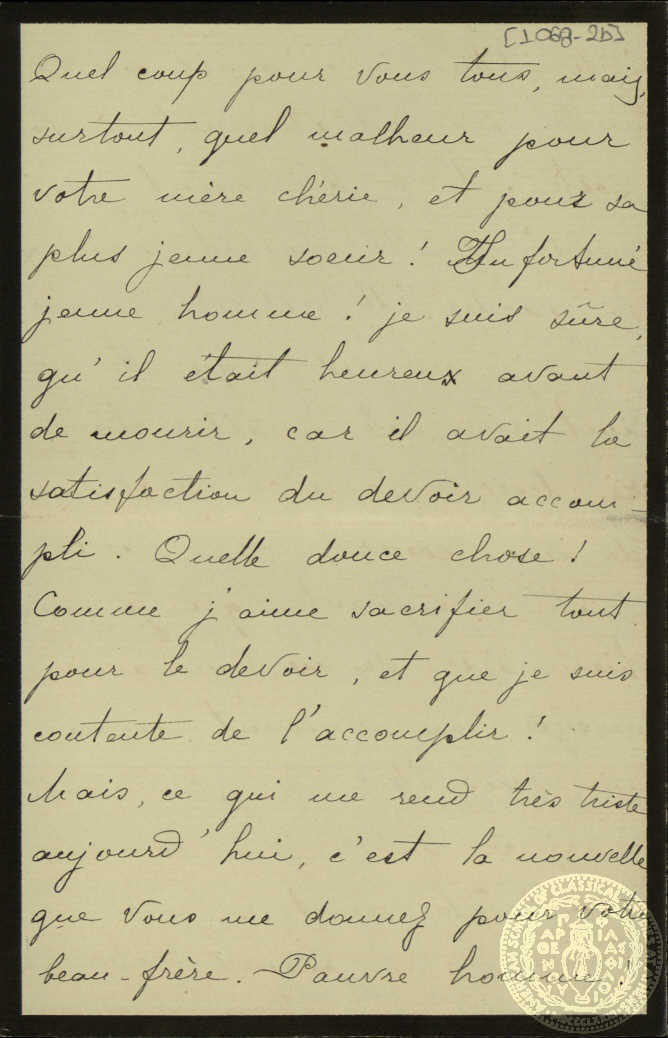 [1068-2b]
Quel coup pour vous tous, mais,
surtout, quel malheur pour
votre mère chérie, et pour sa
plus jeune soeur! Infortuné
jeune homme! je suis sûre,
qu'il était heureux avant
de mourir, car il avait la
satisfaction du devoir accom-
pli. Quelle douce chose!
Comme j'aime sacrifier tout
pour le devoir, et que je suis
contente de l'accomplir!
Mais, ce qui me rend très triste
aujourd'hui, c'est la nouvelle
que vous me donnez pour votre
beau-frère. Pauvre homme!